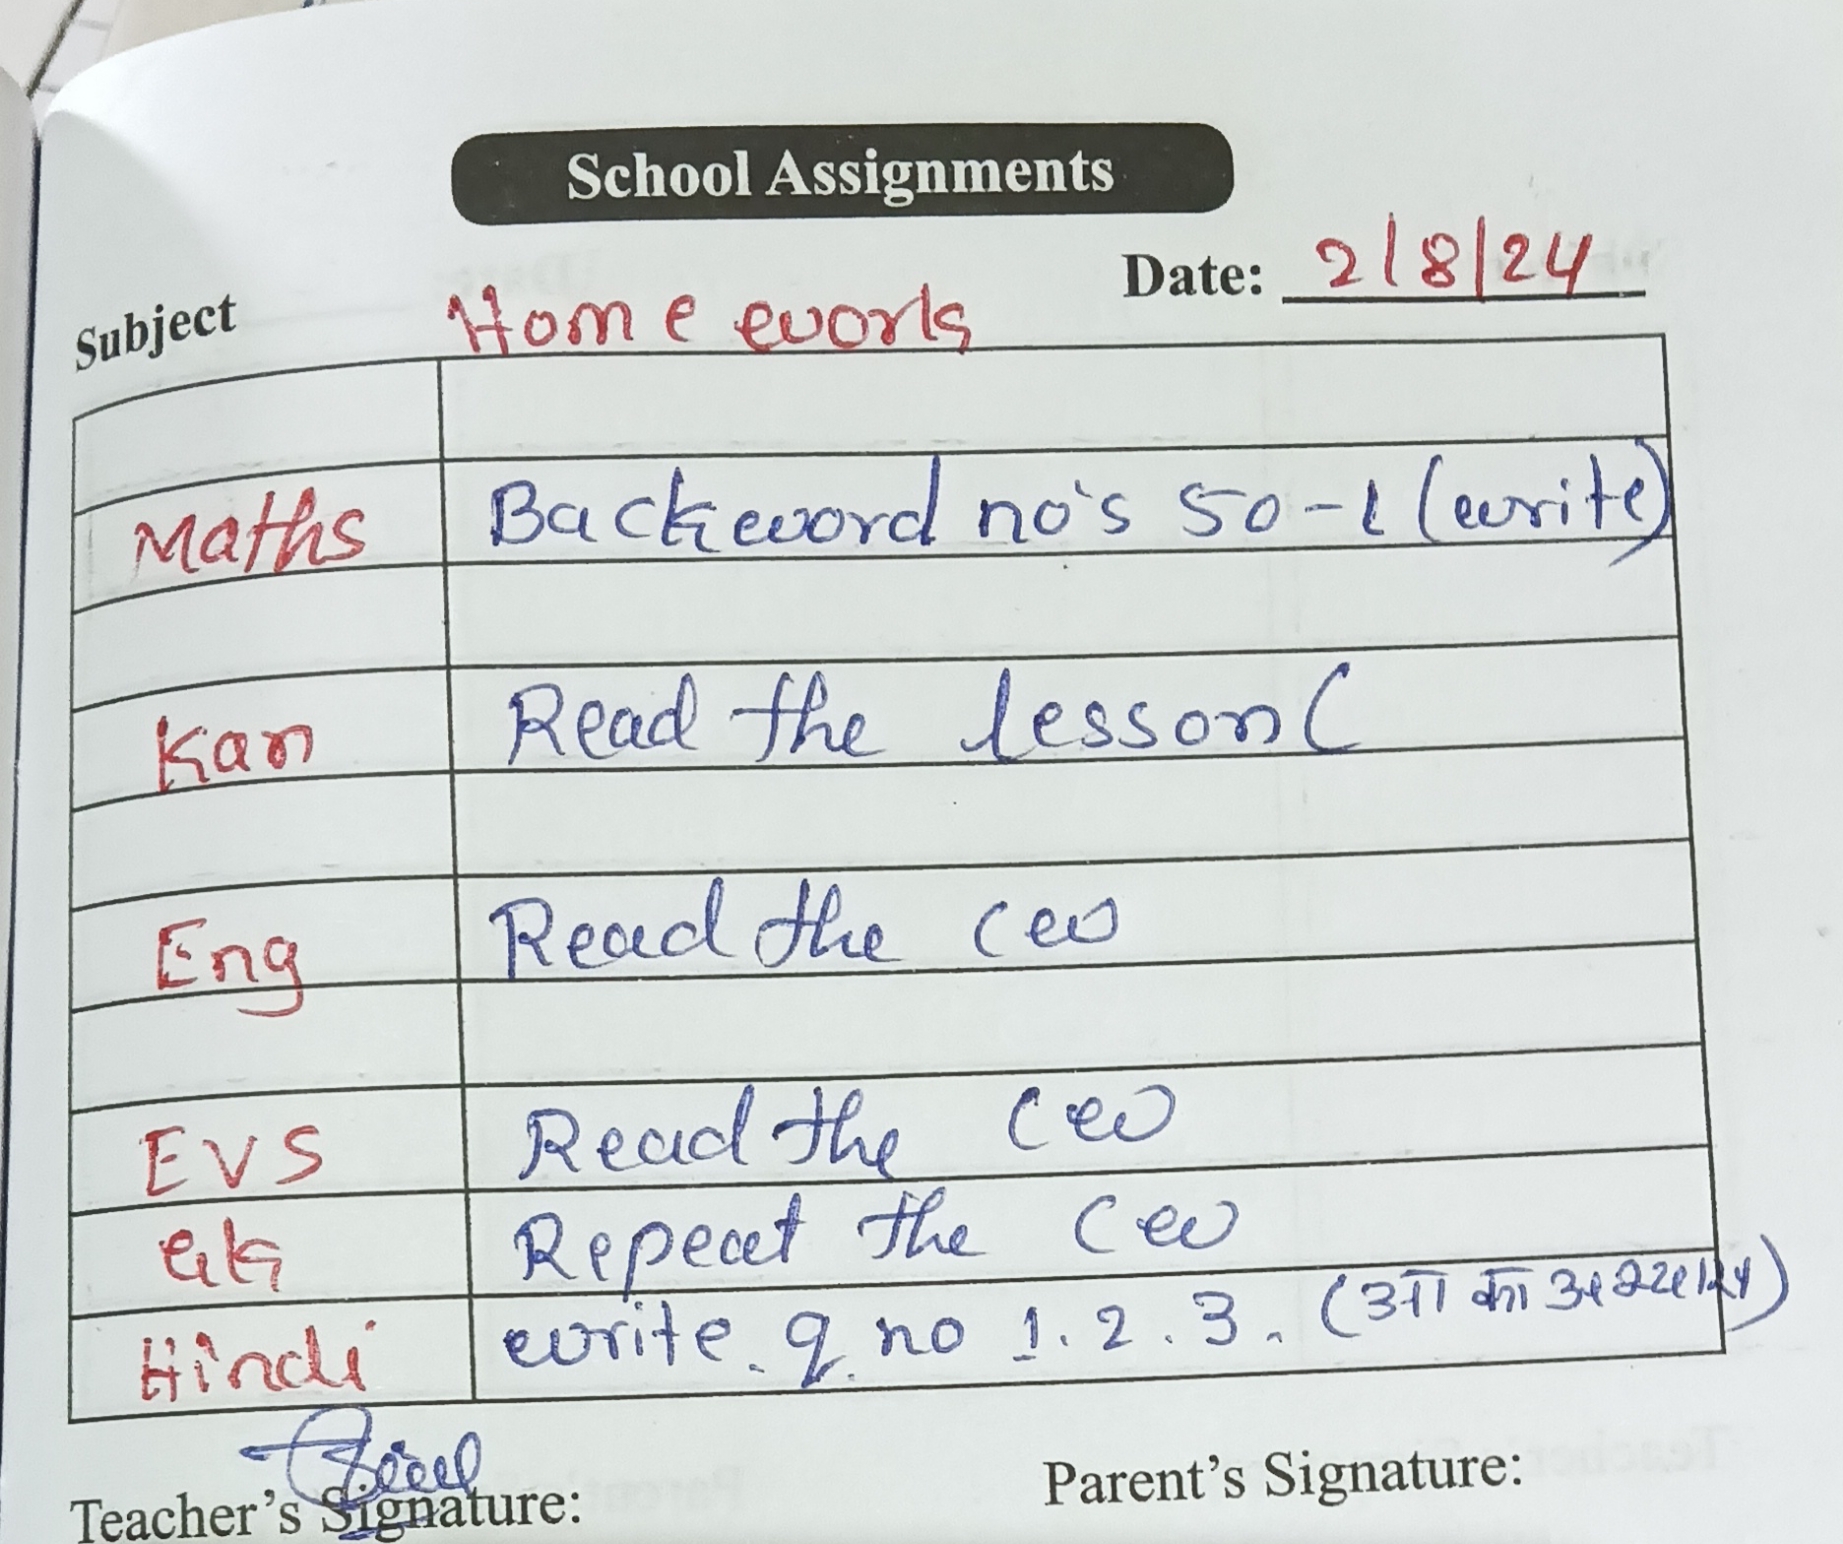 School Assignments
Date: 2/8/24
Subject Home work
Maths Backword no's 50-1 (write)
Kan Read the lesson (
Eng Read the cw
EVS Read the cw
Gk Repeat the cw
Hindi write q. no 1. 2. 3. (आ का अभ्यास)
Teacher's Signature: Parent's Signature: